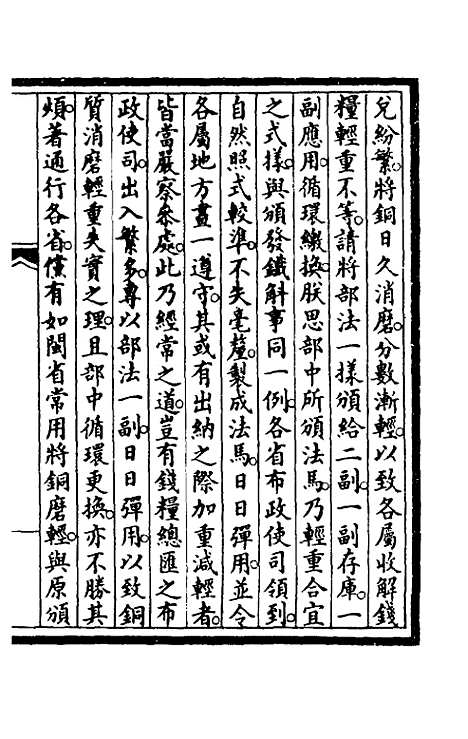 兌紛繁將銅日久消磨分數漸輕以致各屬收解錢
糧輕重不等請將部法一樣頒給二副一副存庫一
副應用循環繳換朕思部中所頒法馬乃輕重合宜
之式樣與頒發鐵斛事同一例各省布政使司領到
自然照式較準不失毫釐製成法馬日日彈用並令
各屬地方畫一遵守其或有出納之際加重減輕者
皆當嚴察叅處此乃經常之道豈有錢糧總匯之布
政使司出入繁多專以部法一副日日彈用以致銅
質消磨輕重失實之理且部中循環更換亦不勝其
煩著通行各省僅有如閩省常用將銅磨輕與原頒